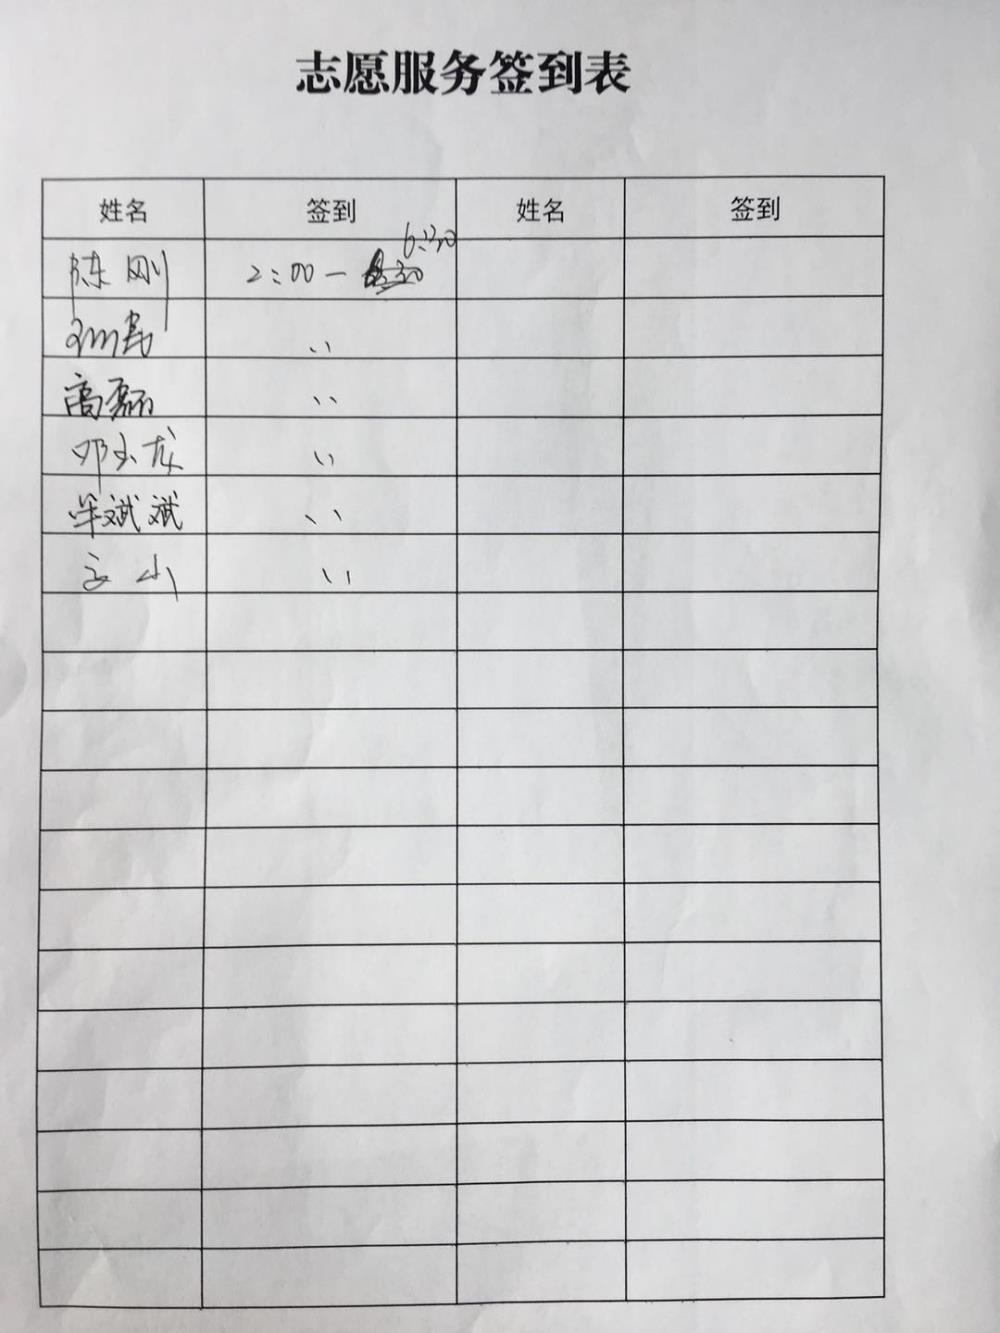 志愿服务签到表
姓名 签到 姓名 签到
陈刚 2:00 — 6:30
高磊 、、
邓玉龙 、、
牟斌斌 、、